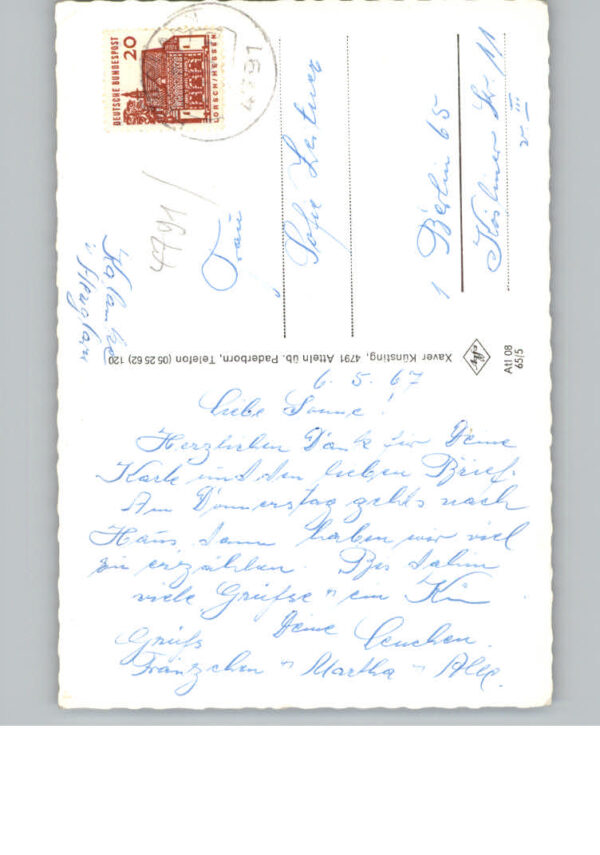 DEUTSCHE BUNDESPOST
20
LORSCH/HESSEN
4791
4791/
Frau
Sofie Zentner
1 Berlin 65
Kösliner Str. 11
v. III
Xaver Künsting, 4791 Atteln üb. Paderborn, Telefon (05 25 62) 120
Atl 08
65/5
6. 5. 67
Liebe Sonne!
Herzlichen Dank für Deine
Karte und den lieben Brief.
Am Donnerstag geht's nach
Haus, dann haben wir viel
zu erzählen. Bis dahin
viele Grüße u ein
Deine Lenchen.
Gruß
Fränzchen u Martha u Alle.